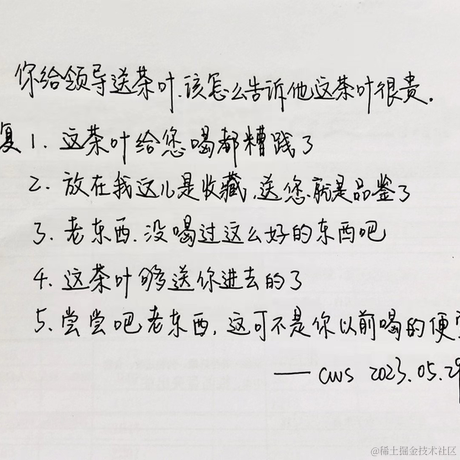 你给领导送茶叶.该怎么告诉他这茶叶很贵.
复 1. 这茶叶给您喝都糟践了
2. 放在我这儿是收藏,送您就是品鉴了
3. 老东西.没喝过这么好的东西吧
4. 这茶叶够送你进去的了
5. 尝尝吧老东西,这可不是你以前喝的便
—— cws 2023.05.29
@稀土掘金技术社区